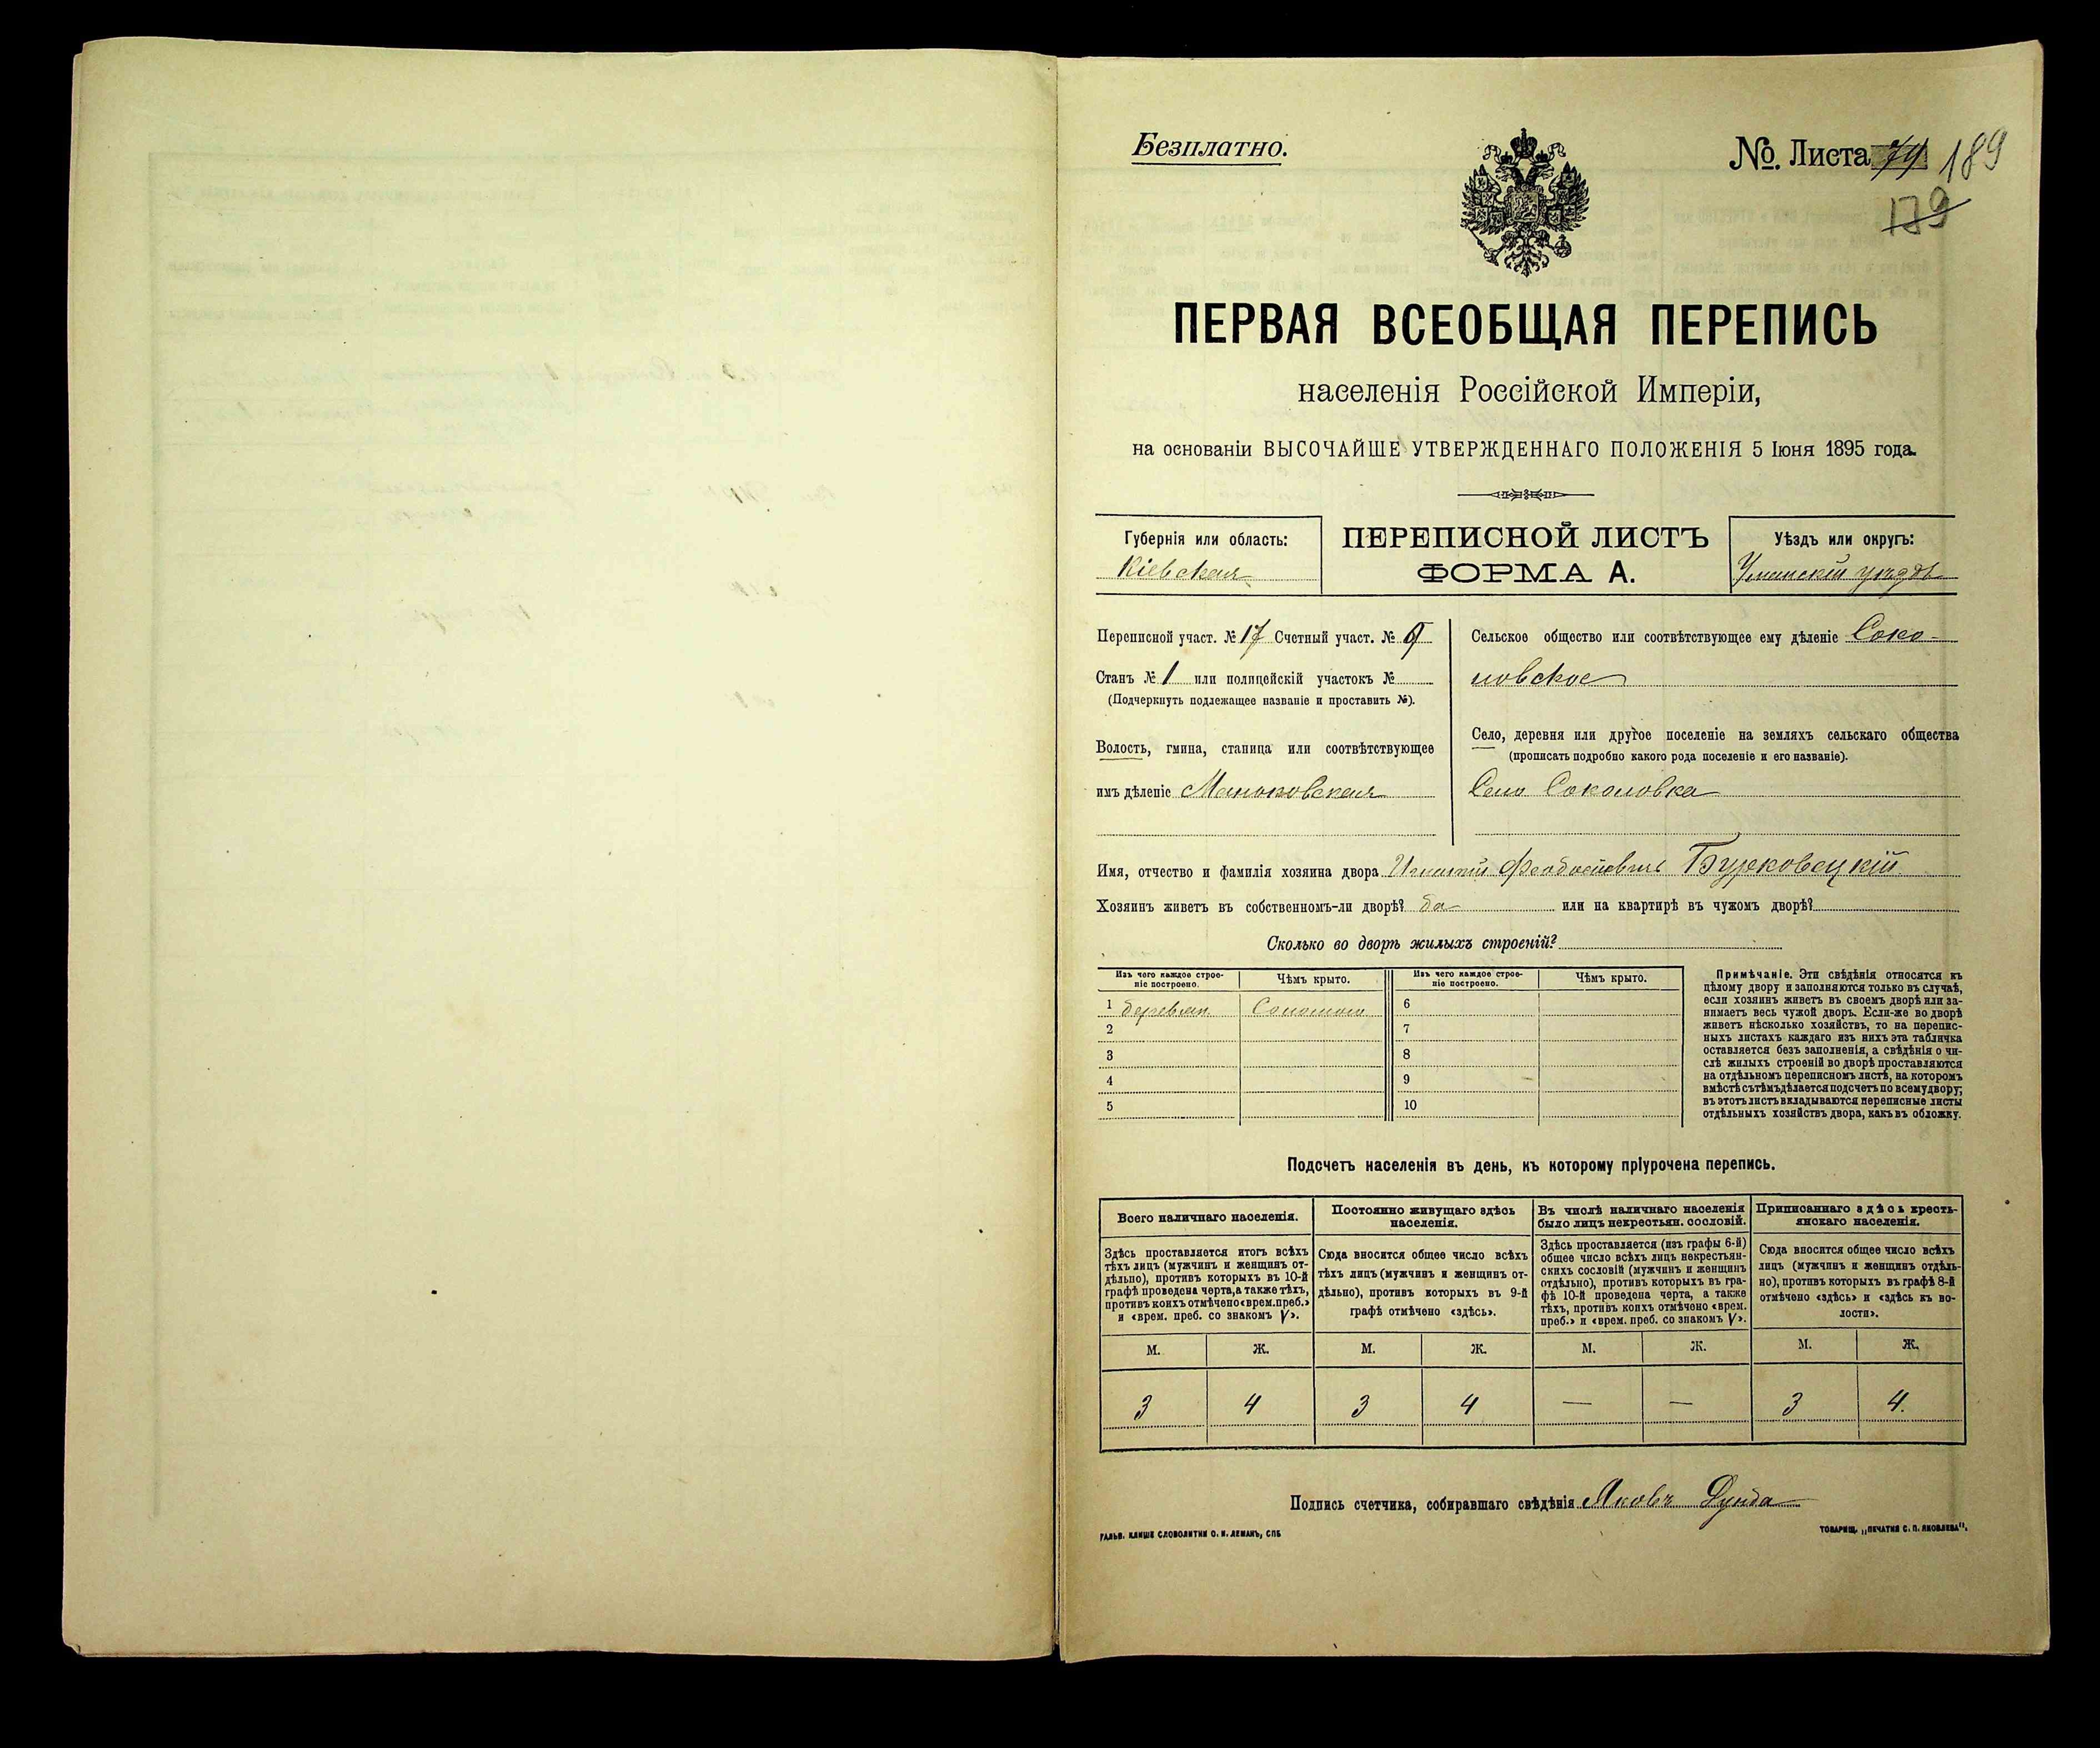 Безплатно.
№. Листа 74 189
179
ПЕРВАЯ ВСЕОБЩАЯ ПЕРЕПИСЬ
населенія Россійской Имперіи,
на основаніи ВЫСОЧАЙШЕ УТВЕРЖДЕННАГО ПОЛОЖЕНІЯ 5 Іюня 1895 года.
Губернія или область:
Кіевская
ПЕРЕПИСНОЙ ЛИСТЪ
ФОРМА А.
Уѣздъ или округъ:
Уманскій уѣздъ
Переписной участ. № 17 Счетный участ. № 9
Станъ № 1 или полицейскій участокъ №
(Подчеркнуть подлежащее названіе и проставить №).
Волость, гмина, станица или соотвѣтствующее
имъ дѣленіе Маньковская
Сельское общество или соотвѣтствующее ему дѣленіе Соко-
ловское
Село, деревня или другое поселеніе на земляхъ сельскаго общества
(прописать подробно какого рода поселеніе и его названіе).
Село Соколовка
Имя, отчество и фамилія хозяина двора Игнатій Феодосіевичъ Бурковецкій
Хозяинъ живетъ въ собственномъ-ли дворѣ? да или на квартирѣ въ чужомъ дворѣ?
Сколько во дворѣ жилыхъ строеній?
Изъ чего каждое строе-
ніе построено.
Чѣмъ крыто.
Изъ чего каждое строе-
ніе построено.
Чѣмъ крыто.
1 деревян. Соломою 6
2 7
3 8
4 9
5 10
Примѣчаніе. Эти свѣдѣнія относятся къ
цѣлому двору и заполняются только въ случаѣ,
если хозяинъ живетъ въ своемъ дворѣ или за-
нимаетъ весь чужой дворъ. Если-же во дворѣ
живетъ нѣсколько хозяйствъ, то на перепис-
ныхъ листахъ каждаго изъ нихъ эта табличка
оставляется безъ заполненія, а свѣдѣнія о чи-
слѣ жилыхъ строеній во дворѣ проставляются
на отдѣльномъ переписномъ листѣ, на которомъ
вмѣстѣ съ тѣмъ дѣлается подсчетъ по всему двору;
въ этотъ листъ вкладываются переписные листы
отдѣльныхъ хозяйствъ двора, какъ въ обложку.
Подсчетъ населенія въ день, къ которому пріурочена перепись.
Всего наличнаго населенія.
Здѣсь проставляется итогъ всѣхъ
тѣхъ лицъ (мужчинъ и женщинъ от-
дѣльно), противъ которыхъ въ 10-й
графѣ проведена черта, а также тѣхъ,
противъ коихъ отмѣчено «врем. преб.»
и «врем. преб. со знакомъ V».
Постоянно живущаго здѣсь
населенія.
Сюда вносится общее число всѣхъ
тѣхъ лицъ (мужчинъ и женщинъ от-
дѣльно), противъ которыхъ въ 9-й
графѣ отмѣчено «здѣсь».
Въ числѣ наличнаго населенія
было лицъ некрестьян. сословій.
Здѣсь проставляется (изъ графы 6-й)
общее число всѣхъ лицъ некрестьян-
скихъ сословій (мужчинъ и женщинъ
отдѣльно), противъ которыхъ въ гра-
фѣ 10-й проведена черта, а также
тѣхъ, противъ коихъ отмѣчено «врем.
преб.» и «врем. преб. со знакомъ V».
Приписаннаго здѣсь кресть-
янскаго населенія.
Сюда вносится общее число всѣхъ
лицъ (мужчинъ и женщинъ отдѣль-
но), противъ которыхъ въ графѣ 8-й
отмѣчено «здѣсь» и «здѣсь къ во-
лости».
М. Ж. М. Ж. М. Ж. М. Ж.
3 4 3 4 — — 3 4.
Подпись счетчика, собиравшаго свѣдѣнія Яковъ Дунда
ГАЛЬВ. КЛИШЕ СЛОВОЛИТНИ О. И. ЛЕМАНЪ, СПБ
ТОВАРИЩ. „ПЕЧАТНЯ С. П. ЯКОВЛЕВА".